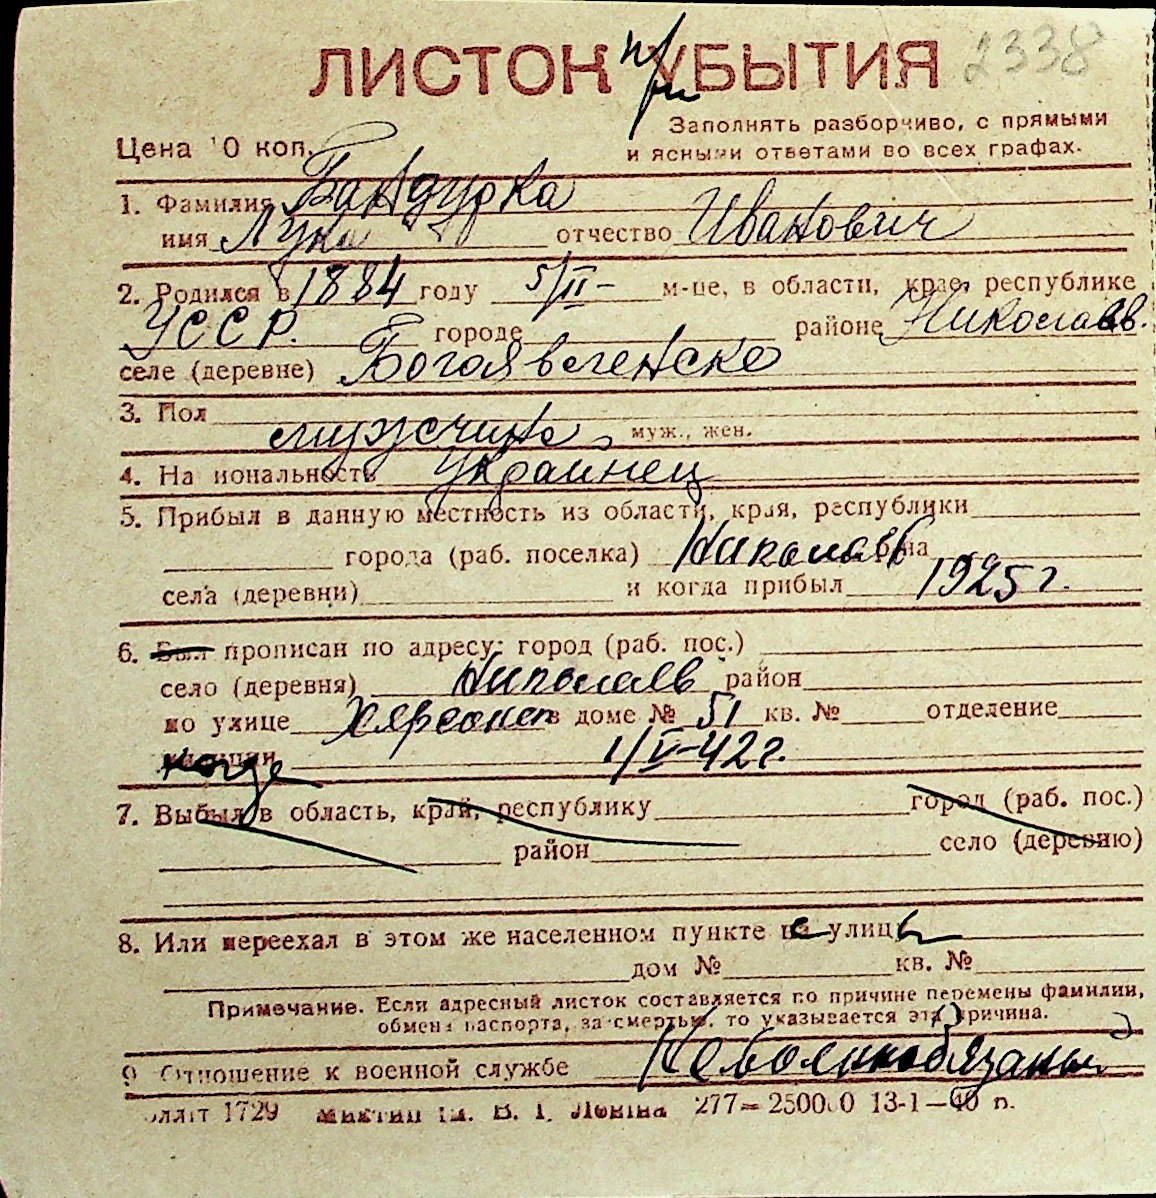 ЛИСТОК при УБЫТИЯ 2338
Заполнять разборчиво, с прямыми
Цена 10 коп. и ясными ответами во всех графах.
1. Фамилия Бандурка
имя Лука отчество Иванович
2. Родился в 1884 году 5/II- м-це, в области, крае, республике
УССР. городе районе Николаев.
селе (деревне) Богоявленске
3. Пол мужчина муж., жен.
4. Национальность Украинец
5. Прибыл в данную местность из области, края, республики
города (раб. поселка) Николаев она
села (деревни) и когда прибыл 1925 г.
6. Был прописан по адресу: город (раб. пос.)
село (деревня) Николаев район
по улице Херсонск в доме № 51 кв. № отделение
милиции когда 1/V-42 г.
7. Выбыл в область, край, республику город (раб. пос.)
район село (деревню)
8. Или переехал в этом же населенном пункте с улицы
дом № кв. №
Примечание. Если адресный листок составляется по причине перемены фамилии,
обмена паспорта, за смертью, то указывается эта причина.
9. Отношение к военной службе Невоеннообязаный
1729 В. І. Леніна 277— 250000 13-1—40 р.